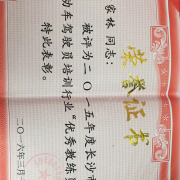 荣誉证书
家休 同志：
被评为二〇一五年度长沙市
动车驾驶员培训行业“优秀教练员
特此表彰。
二〇一六年三月